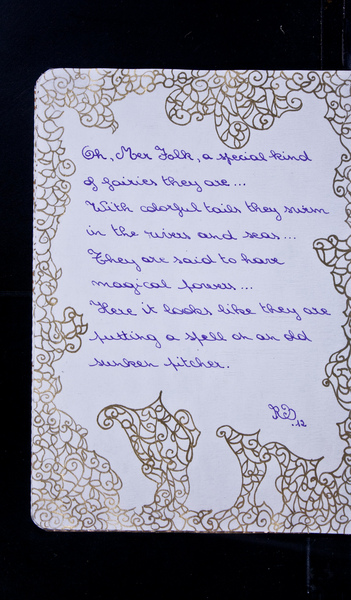 Oh, Mer Folk, a special kind
of fairies they are...
With colorful tails they swim
in the rivers and seas...
They are said to have
magical powers...
Here it looks like they are
putting a spell on an old
sunken pitcher.
RD
.12